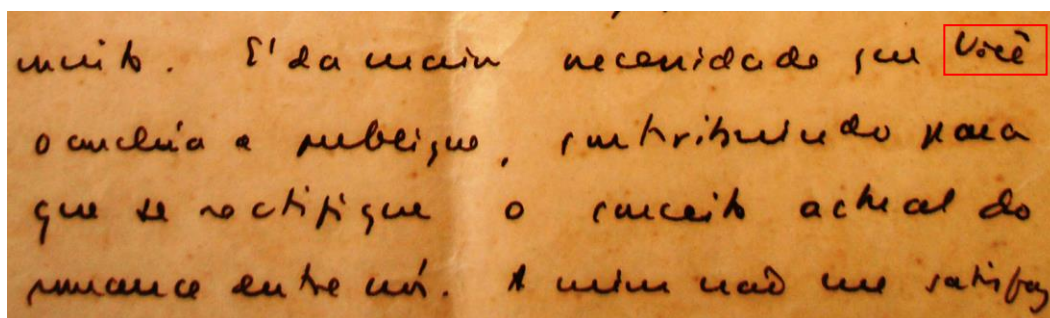 muito. E' da maior necessidade que Você
o conclúa e publique, contribuindo para
que se rectifique o conceito actual do
romance entre nós. A mim não me satisfaz